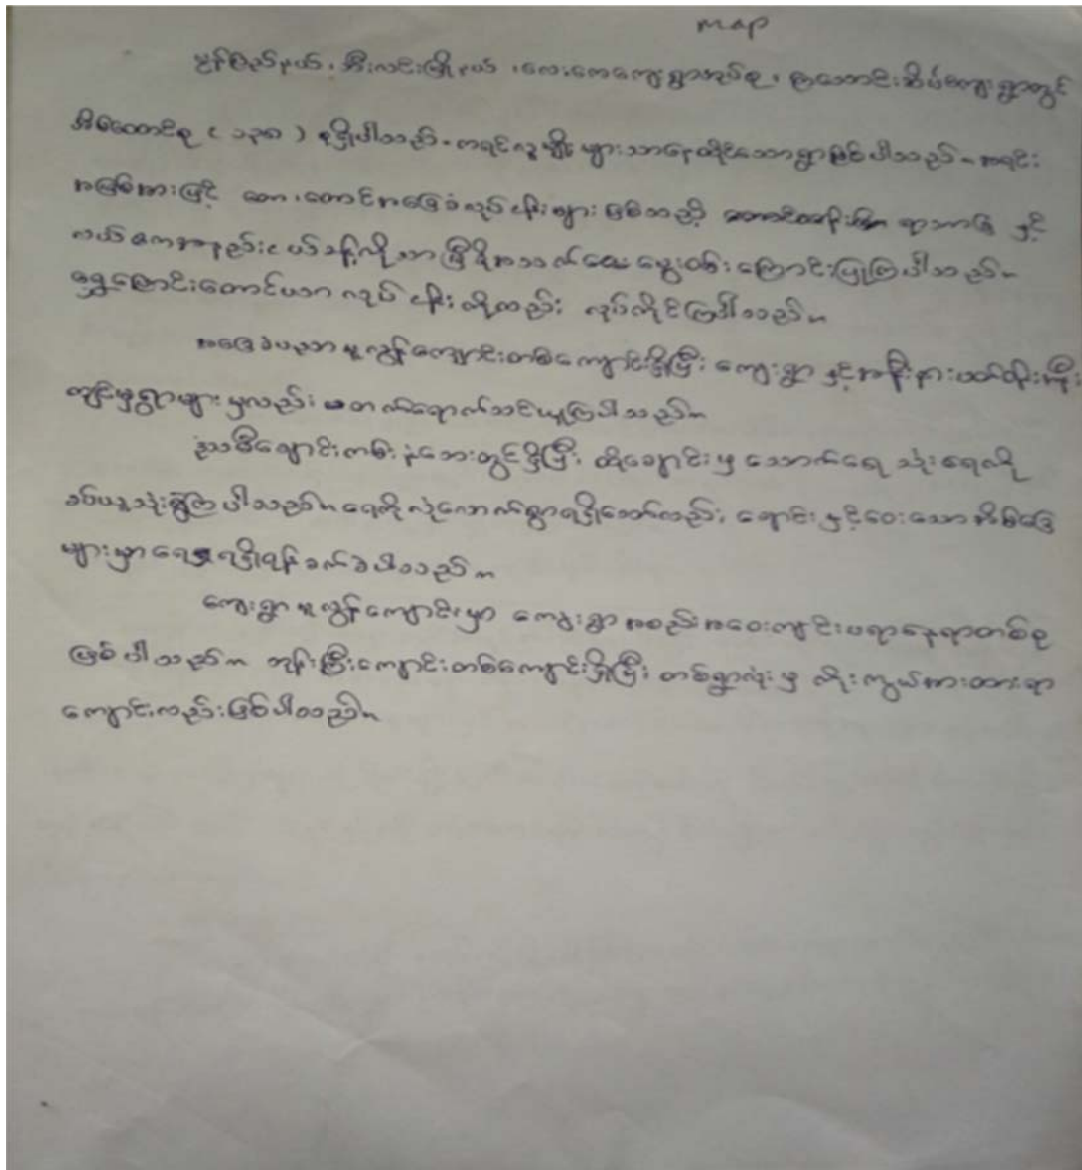 map
မွန်ပြည်နယ်၊ ဘီးလင်းမြို့နယ်၊ လေးကေကျေးရွာအုပ်စု၊ ကျေးရွာတွင်
အိမ်ထောင်စု ( ၁၃၈ ) စုရှိပါသည်။ ကရင်လူမျိုးများသာနေထိုင်သောရွာဖြစ်ပါသည်။ အရင်း
အမြစ်အားဖြင့် တော၊ တောင်အခြေခံလုပ်ငန်းများ ဖြစ်သည့် နှင့်
လယ် အနည်းငယ်ခန့်ကိုသာ မှီခိုအသက်မွေးဝမ်းကျောင်းပြုကြပါသည်။
ရွှေ့ပြောင်းတောင်ယာ လုပ်ငန်းကိုလည်း လုပ်ကိုင်ကြပါသည်။
အခြေခံပညာမူလွန်ကျောင်းတစ်ကျောင်းရှိပြီး ကျေးရွာနှင့်အနီးနားပတ်ဝန်းကျင်
ကျင်မှရွာများမှလည်း တက်ရောက်သင်ယူကြပါသည်။
ချောင်းကမ်းနံဘေးတွင်ရှိပြီး ထိုချောင်းမှ သောက်ရေ သုံးရေကို
ခပ်ယူသုံးစွဲကြပါသည်။ ရေကိုလုံလောက်စွာရရှိသော်လည်း ချောင်းနှင့်ဝေးသောအိမ်ခြေ
များမှာ ရေရရှိရန်ခက်ခဲပါသည်။
ကျေးရွာမူလွန်ကျောင်းမှာ ကျေးရွာအစည်းအဝေးကျင်းပရာနေရာတစ်ခု
ဖြစ်ပါသည်။ ဘုန်းကြီးကျောင်းတစ်ကျောင်းရှိပြီး တစ်ရွာလုံးမှ ကိုးကွယ်အားထားရာ
ကျောင်းလည်းဖြစ်ပါသည်။